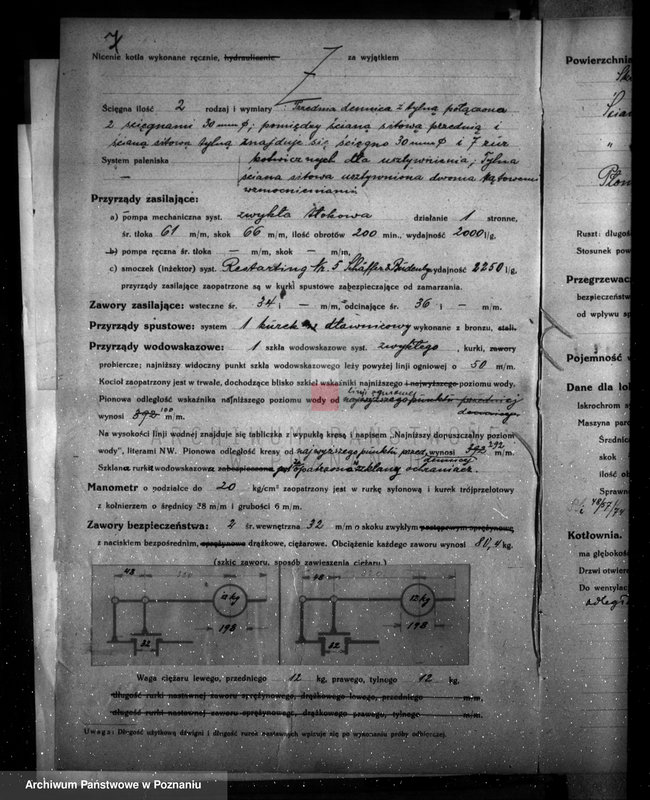 7
Nicenie kotła wykonane ręcznie, hydraulicznie za wyjątkiem
Ścięgna ilość 2 rodzaj i wymiary: Przednia dennica z tylną połączona
2 ścięgnami 30 mm φ; pomiędzy ścianą sitową przednią i
ścianą sitową tylną znajduje się ścięgno 30 mm φ i 7 rur
System paleniska kotwicznych dla usztywnienia; Tylna
— ściana sitowa usztywniona dwoma kątowemi
wzmocnieniami
Przyrządy zasilające:
a) pompa mechaniczna syst. zwykła tłokowa działanie 1 stronne,
śr. tłoka 61 m/m, skok 66 m/m, ilość obrotów 200 min., wydajność 2000 l/g,
b) pompa ręczna śr. tłoka — m/m, skok — m/m,
c) smoczek (inżektor) syst. Restarting Nr. 5 Schäffer & Budenberg wydajność 2250 l/g,
przyrządy zasilające zaopatrzone są w kurki spustowe zabezpieczające od zamarzania.
Zawory zasilające: wsteczne śr. 34 i — m/m, odcinające śr. 36 i — m/m.
Przyrządy spustowe: system 1 kurek dławnicowy wykonane z bronzu, stali.
Przyrządy wodowskazowe: 1 szkła wodowskazowe syst. zwykłego, kurki, zawory
probiercze; najniższy widoczny punkt szkła wodowskazowego leży powyżej linji ogniowej o 50 m/m.
Kocioł zaopatrzony jest w trwałe, dochodzące blisko szkieł wskaźniki najniższego i najwyższego poziomu wody.
linji ogniowej
Pionowa odległość wskaźnika najniższego poziomu wody od najwyższego punktu przedniej
wynosi 392 100 m/m.
Na wysokości linji wodnej znajduje się tabliczka z wypukłą kresą i napisem "Najniższy dopuszczalny poziom
wody", literami NW. Pionowa odległość kresy od najwyższego punktu przed. wynosi 392 292 m/m.
dennicy
Szkła rurki wodowskazowe zabezpieczone zaopatrzone w szklany ochraniacz.
Manometr o podziałce do 20 kg/cm² zaopatrzony jest w rurkę syfonową i kurek trójprzelotowy
z kołnierzem o średnicy 28 m/m i grubości 6 m/m.
Zawory bezpieczeństwa: 2 śr. wewnętrzna 32 m/m o skoku zwykłym postępowym sprężynowe,
z naciskiem bezpośrednim, sprężynowe drążkowe, ciężarowe. Obciążenie każdego zaworu wynosi 80,4 kg.
(szkic zaworu, sposób zawieszenia ciężaru.)
48
12 kg
198
32
48
12 kg
198
32
Waga ciężaru lewego, przedniego 12 kg, prawego, tylnego 12 kg,
długość rurki nastawnej zaworu sprężynowego, drążkowego lewego, przedniego m/m,
długość rurki nastawnej zaworu sprężynowego, drążkowego prawego, tylnego m/m.
Uwaga: Długość użytkową dźwigni i długość rurek nastawnych wpisuje się po wykonaniu próby odbiorczej.
Powierzchnie
Ruszt: długość
Stosunek pow
Przegrzewac
bezpieczeństw
od wpływu sp
Pojemność w
Dane dla lo
Iskrochron sy
Maszyna parc
Średnic
skok
Ilość ob
Sprawn
Kotłownia.
ma głębokość
Drzwi otwiere
Do wentylac
Archiwum Państwowe w Poznaniu